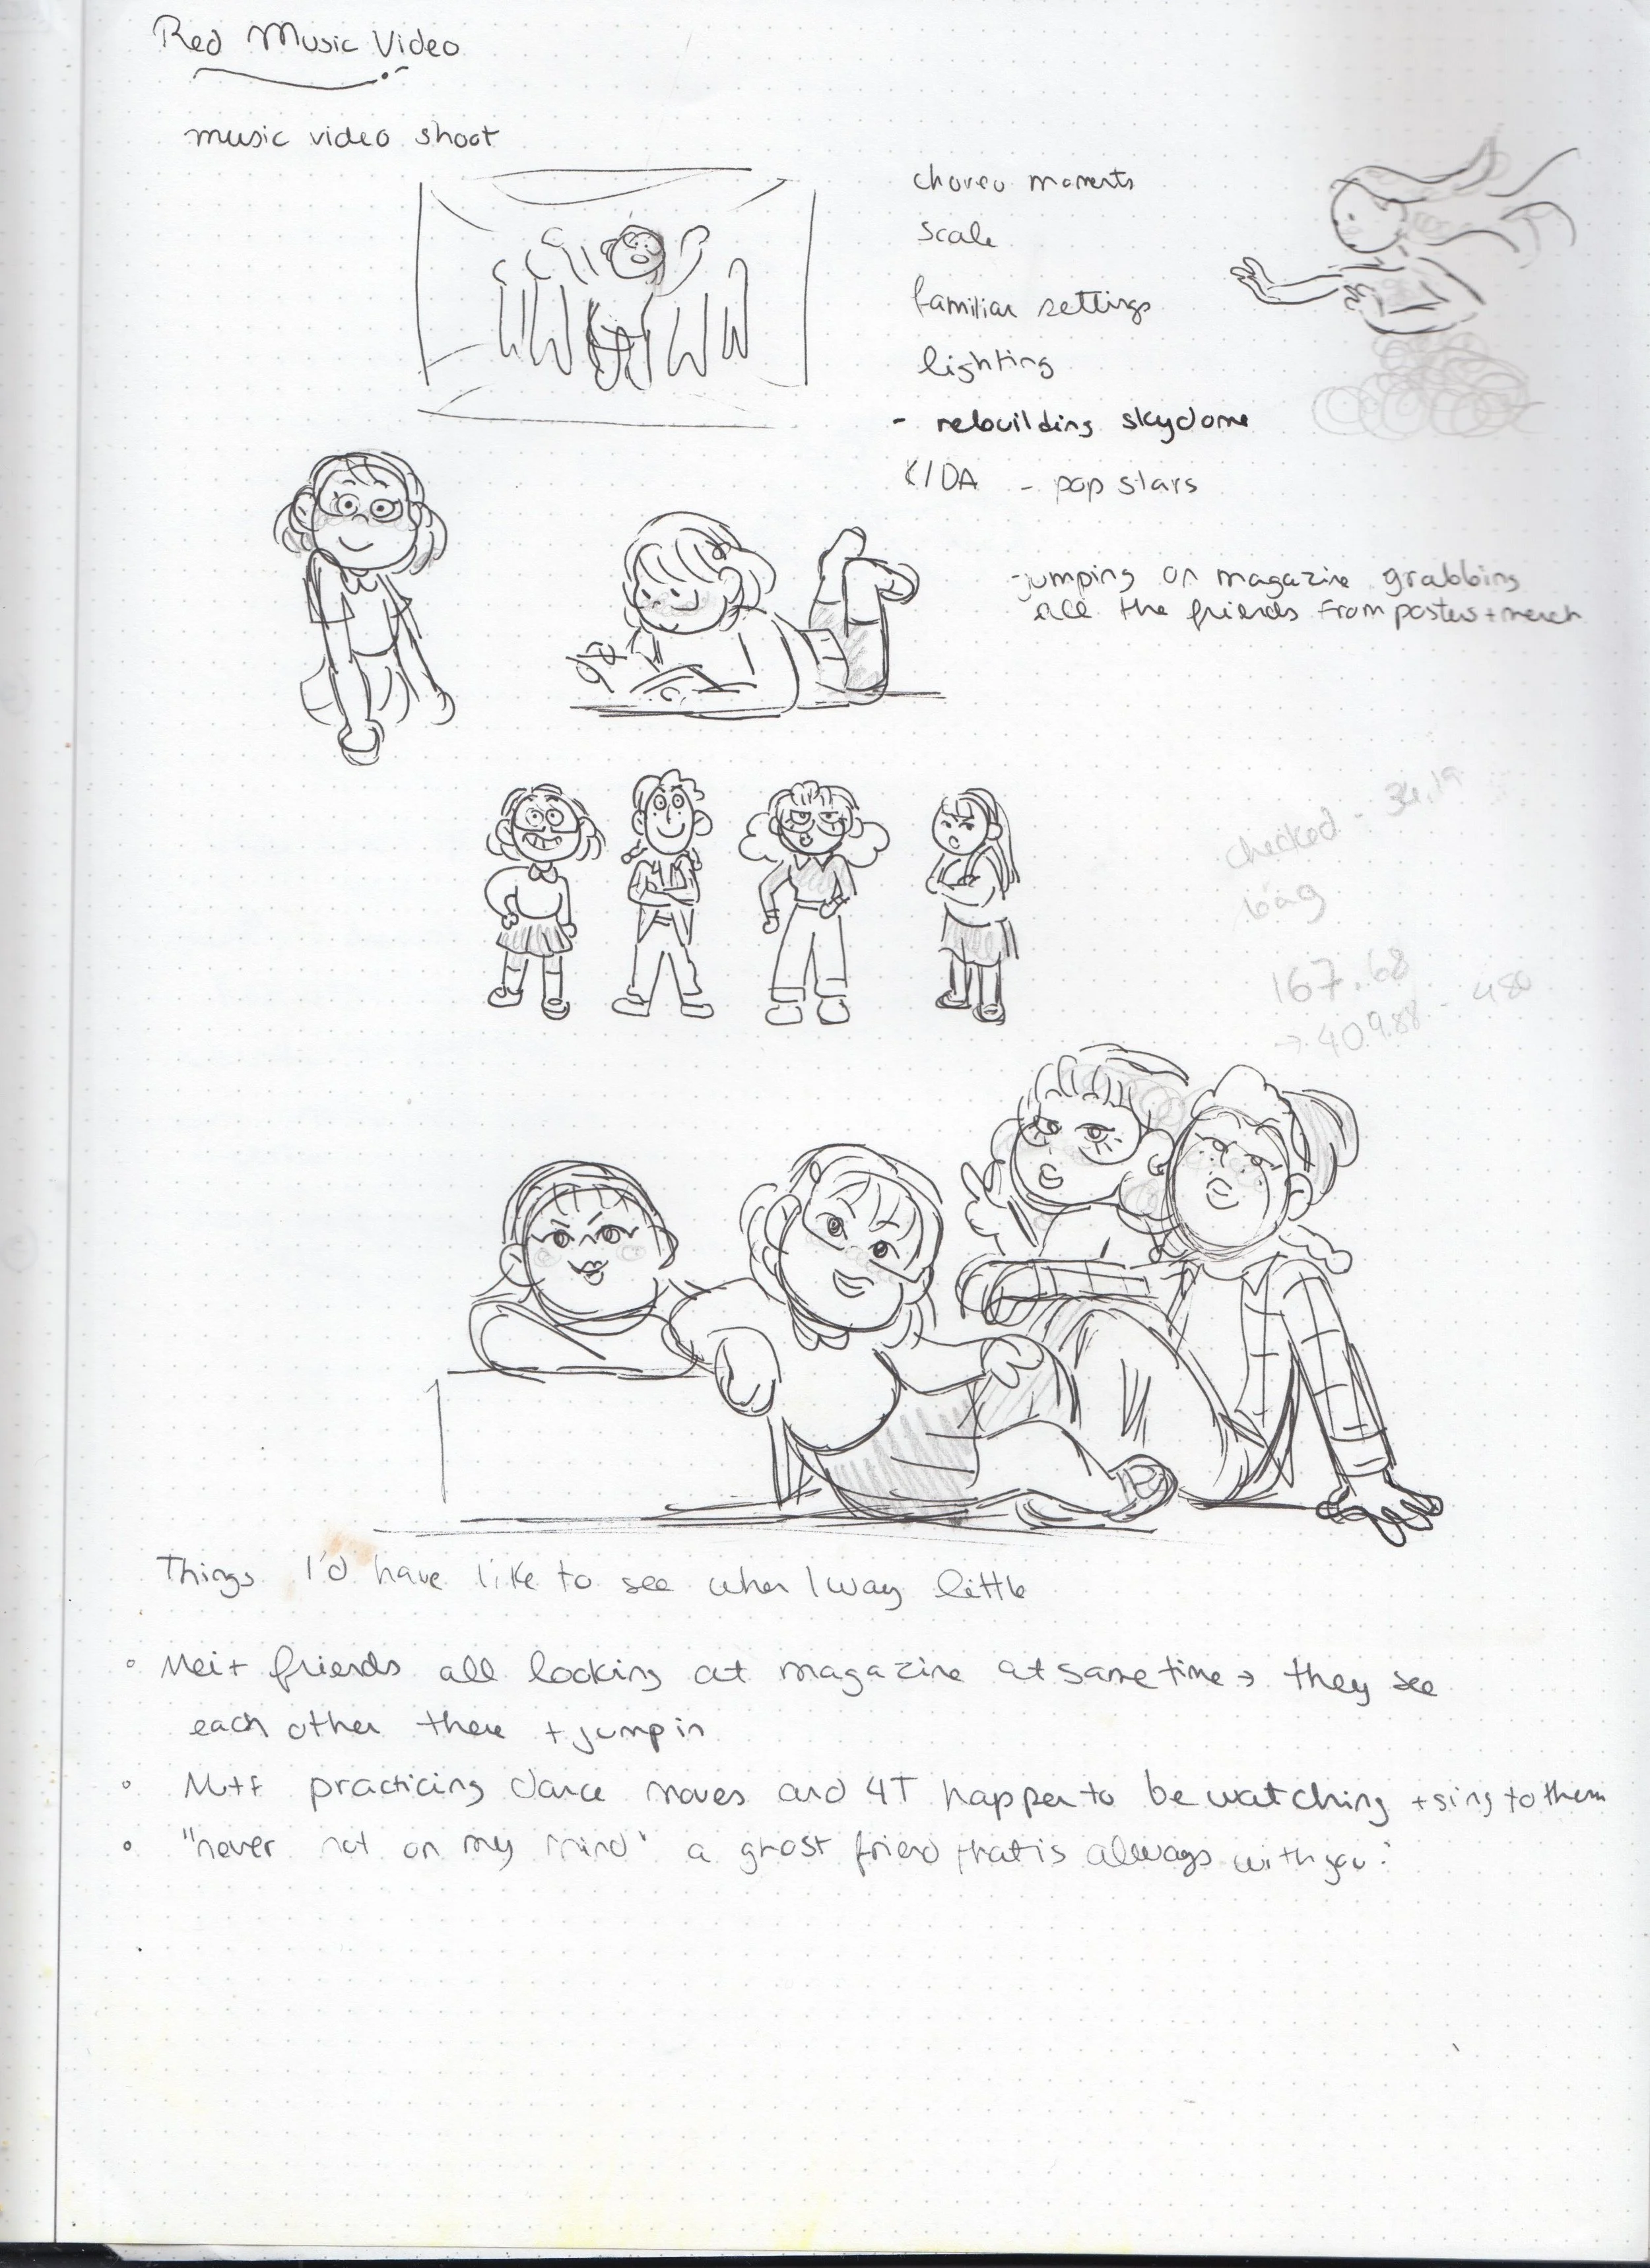 Red Music Video
music video shoot
choreo moments
scale
familiar settings
lighting
- rebuilding skydome
K/DA - pop stars
- jumping on magazine grabbing
all the friends from posters + merch
checked - 34.19
bag
167.68
→ 409.88 - 480
Things I'd have like to see when I way little
◦ Mei + friends all looking at magazine at same time → they see
each other there + jump in
◦ M+f practicing dance moves and 4T happen to be watching + sing to them
◦ "never not on my mind" a ghost friend that is always with you!